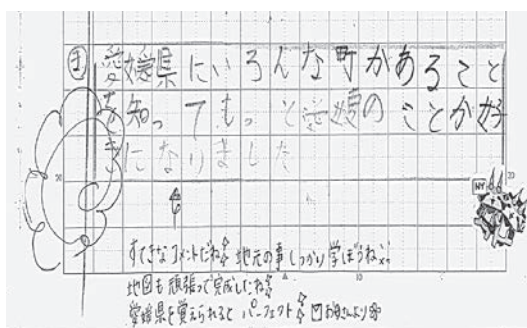 ま 愛媛県にいろんな町があること
を知ってもっと愛媛のことが好
きになりました
すてきなコメントだね 地元の事しっかり学ぼうね
地図も頑張って完成したね
愛媛県を覚えられるとパーフェクト お母さんより